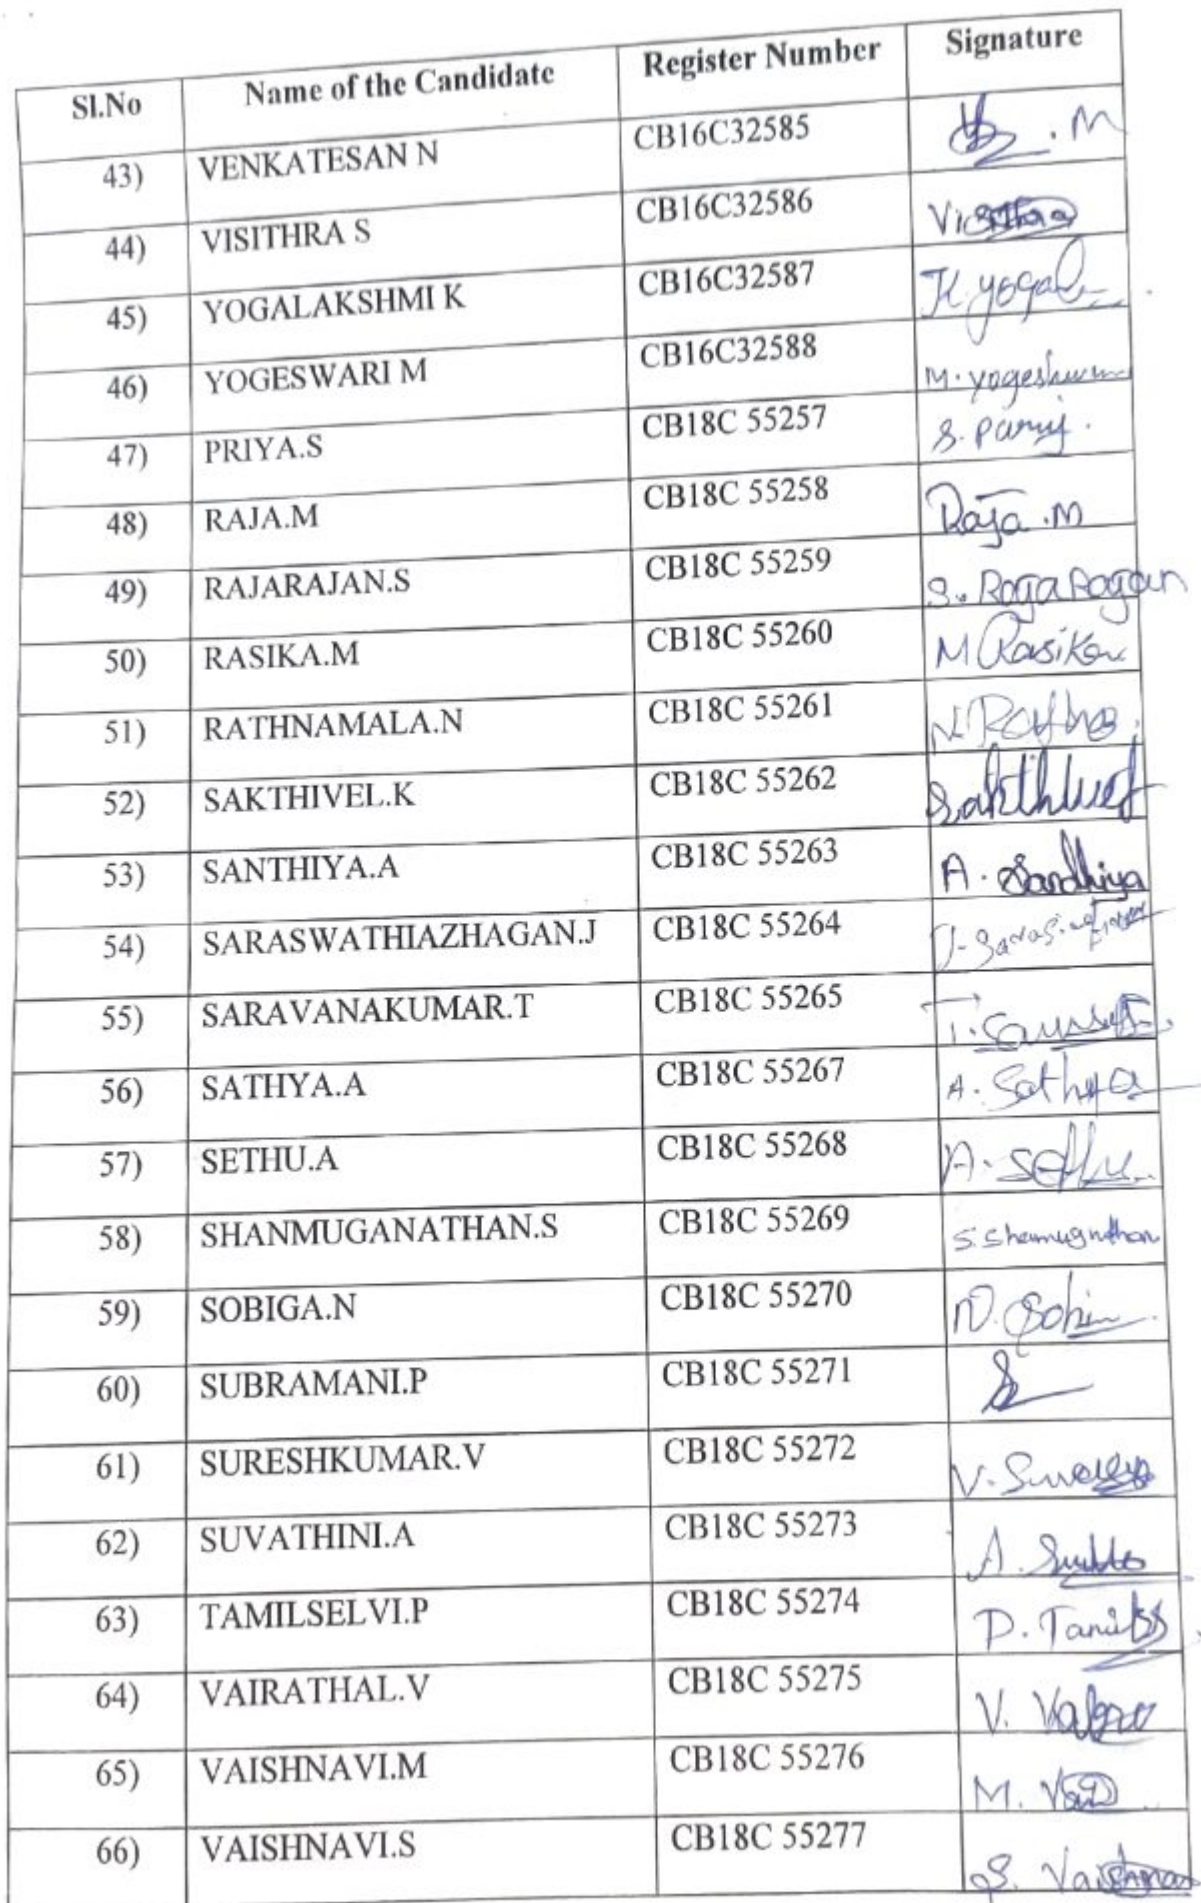 Sl.No Name of the Candidate Register Number Signature
43) VENKATESAN N CB16C32585 . M
44) VISITHRA S CB16C32586
45) YOGALAKSHMI K CB16C32587 K. yogal
46) YOGESWARI M CB16C32588 M. yogeshwari
47) PRIYA.S CB18C 55257 S.
48) RAJA.M CB18C 55258 Raja .M
49) RAJARAJAN.S CB18C 55259 S. RagaRagan
50) RASIKA.M CB18C 55260 M Rasika
51) RATHNAMALA.N CB18C 55261 N. Rathna
52) SAKTHIVEL.K CB18C 55262 Sakthivel
53) SANTHIYA.A CB18C 55263 A. Sandhiya
54) SARASWATHIAZHAGAN.J CB18C 55264 J.
55) SARAVANAKUMAR.T CB18C 55265 T.
56) SATHYA.A CB18C 55267 A. Sathya
57) SETHU.A CB18C 55268 A. Sethu
58) SHANMUGANATHAN.S CB18C 55269 S.
59) SOBIGA.N CB18C 55270 N.
60) SUBRAMANI.P CB18C 55271
61) SURESHKUMAR.V CB18C 55272 V.
62) SUVATHINI.A CB18C 55273 A.
63) TAMILSELVI.P CB18C 55274 P.
64) VAIRATHAL.V CB18C 55275 V.
65) VAISHNAVI.M CB18C 55276 M.
66) VAISHNAVI.S CB18C 55277 S.